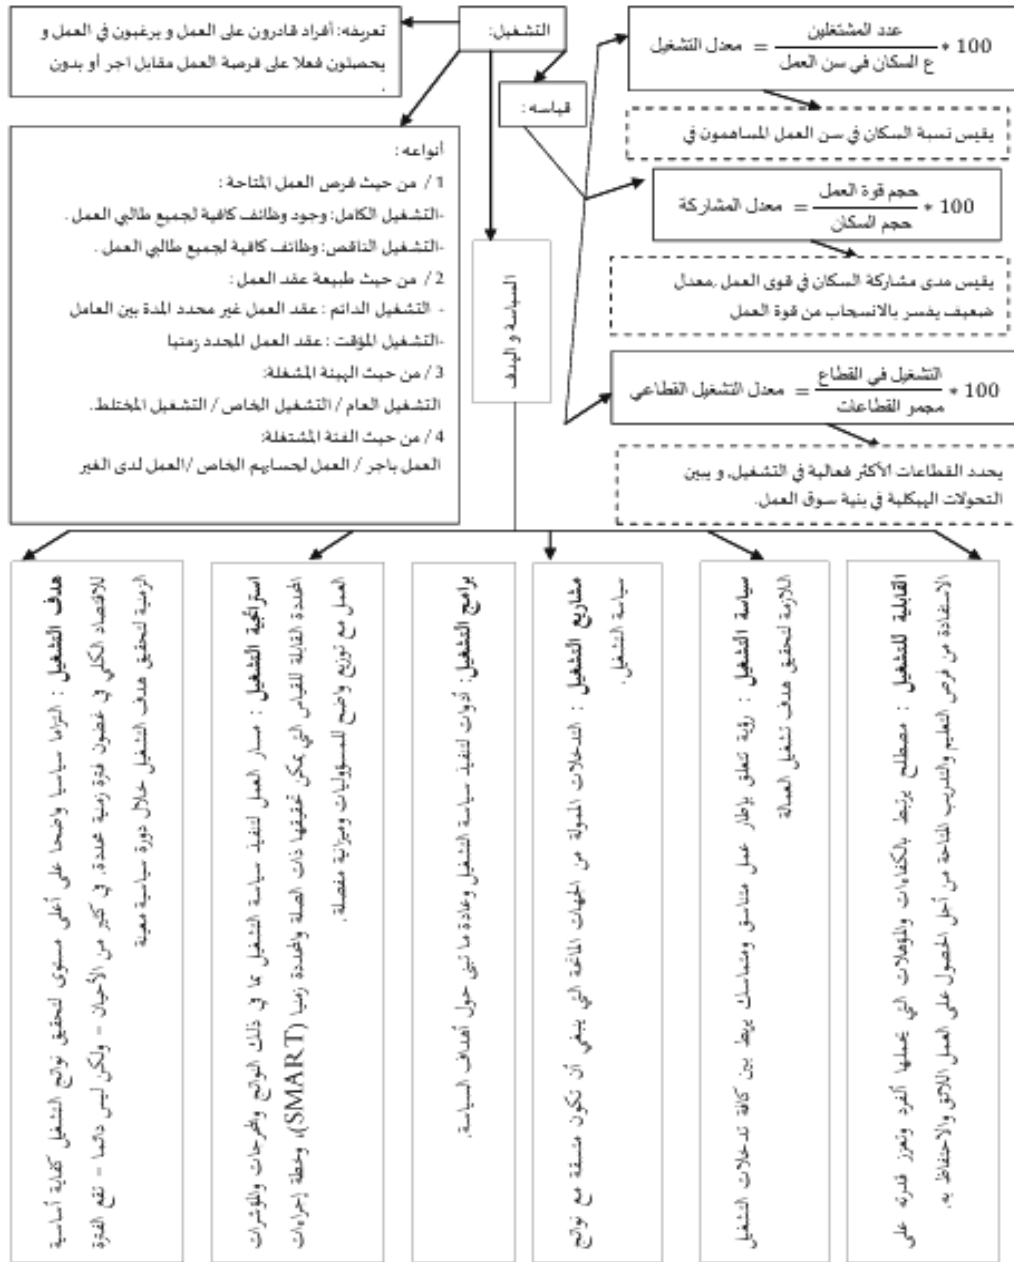 التشغيل:
تعريفه: أفراد قادرون على العمل و يرغبون في العمل و
يحصلون فعلا على فرصة العمل مقابل اجر أو بدون
.
قياسه :
معدل التشغيل = عدد المشتغلين / ع السكان في سن العمل * 100
يقيس نسبة السكان في سن العمل المساهمون في
معدل المشاركة = حجم قوة العمل / حجم السكان * 100
يقيس مدى مشاركة السكان في قوى العمل .معدل
ضعيف يفسر بالانسحاب من قوة العمل
معدل التشغيل القطاعي = التشغيل في القطاع / مجمر القطاعات * 100
يحدد القطاعات الأكثر فعالية في التشغيل, و يبين
التحولات الهيكلية في بنية سوق العمل.
أنواعه :
1 / من حيث فرص العمل المتاحة :
-التشغيل الكامل: وجود وظائف كافية لجميع طالبي العمل .
-التشغيل الناقص: وظائف كافية لجميع طالبي العمل .
2 / من حيث طبيعة عقد العمل :
- التشغيل الدائم : عقد العمل غير محدد المدة بين العامل
-التشغيل المؤقت : عقد العمل المحدد زمنيا
3 / من حيث الهيئة المشغلة:
التشغيل العام / التشغيل الخاص / التشغيل المختلط.
4 / من حيث الفئة المشتغلة:
العمل باجر / العمل لحسابهم الخاص /العمل لدى الغير
السياسة و الهدف
القابلية للتشغيل : مصطلح يرتبط بالكفاءات والمؤهلات التي يحملها الفرد وتعزز قدرته على
الاستفادة من فرص التعليم والتدريب المتاحة من أجل الحصول على العمل اللائق والاحتفاظ به.
سياسة التشغيل : رؤية تتعلق بإطار عمل متناسق ومتماسك يربط بين كافة تدخلات التشغيل
اللازمة لتحقيق هدف تشغيل العمالة
مشاريع التشغيل : التدخلات الممولة من الجهات المانحة التي ينبغي أن تكون متسقة مع نواتج
سياسة التشغيل.
برامج التشغيل: أدوات لتنفيذ سياسة التشغيل وعادة ما تبنى حول أهداف السياسة.
استراتجية التشغيل : مسار العمل لتنفيذ سياسة التشغيل بما في ذلك النواتج والمخرجات والمؤشرات
المحددة القابلة للقياس التي يمكن تحقيقها ذات الصلة والمحددة زمنيا (SMART)، وخطة إجراءات
العمل مع توزيع واضح للمسؤوليات وميزانية مفصلة.
هدف التشغيل : التزاما سياسيا واضحا على أعلى مستوى لتحقيق نواتج التشغيل كغاية أساسية
للاقتصاد الكلي في غضون فترة زمنية محددة. في كثير من الأحيان – ولكن ليس دائما – تقع الفترة
الزمنية لتحقيق هدف التشغيل خلال دورة سياسية معينة